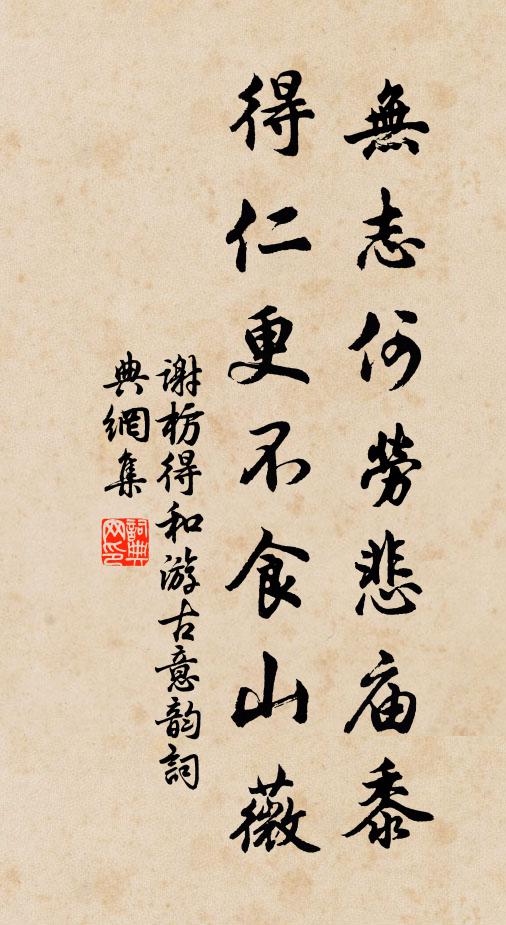 無志何勞悲庙黍
得仁更不食山薇
谢枋得和游古意韵詞
典網集
詞典
网印